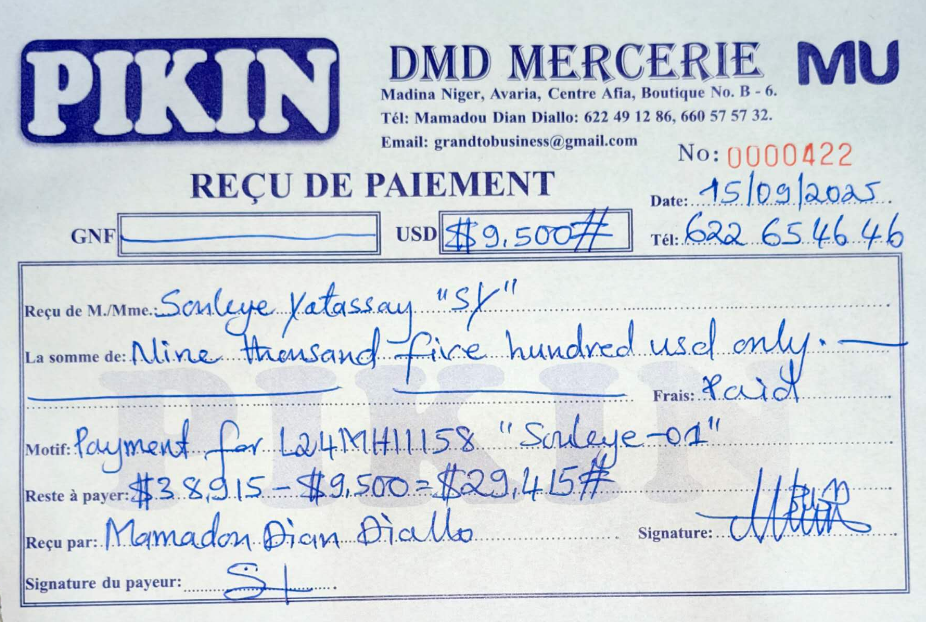 PIKIN
DMD MERCERIE
MU
Madina Niger, Avaria, Centre Afia, Boutique No. B - 6.
Tél: Mamadou Dian Diallo: 622 49 12 86, 660 57 57 32.
Email: grandtobusiness@gmail.com
No: 0000422
REÇU DE PAIEMENT
Date: 15/09/2025
GNF USD $9,500# Tél: 622 65 46 46
Reçu de M./Mme. Souleye Yatassay "SY"
La somme de: Nine thousand five hundred usd only.
Frais: Paid
PIKIN
Motif: Payment for L24MH11158 "Souleye-01"
Reste à payer: $38,915 - $9,500 = $29,415#
Reçu par: Mamadou Dian Diallo Signature:
Signature du payeur: